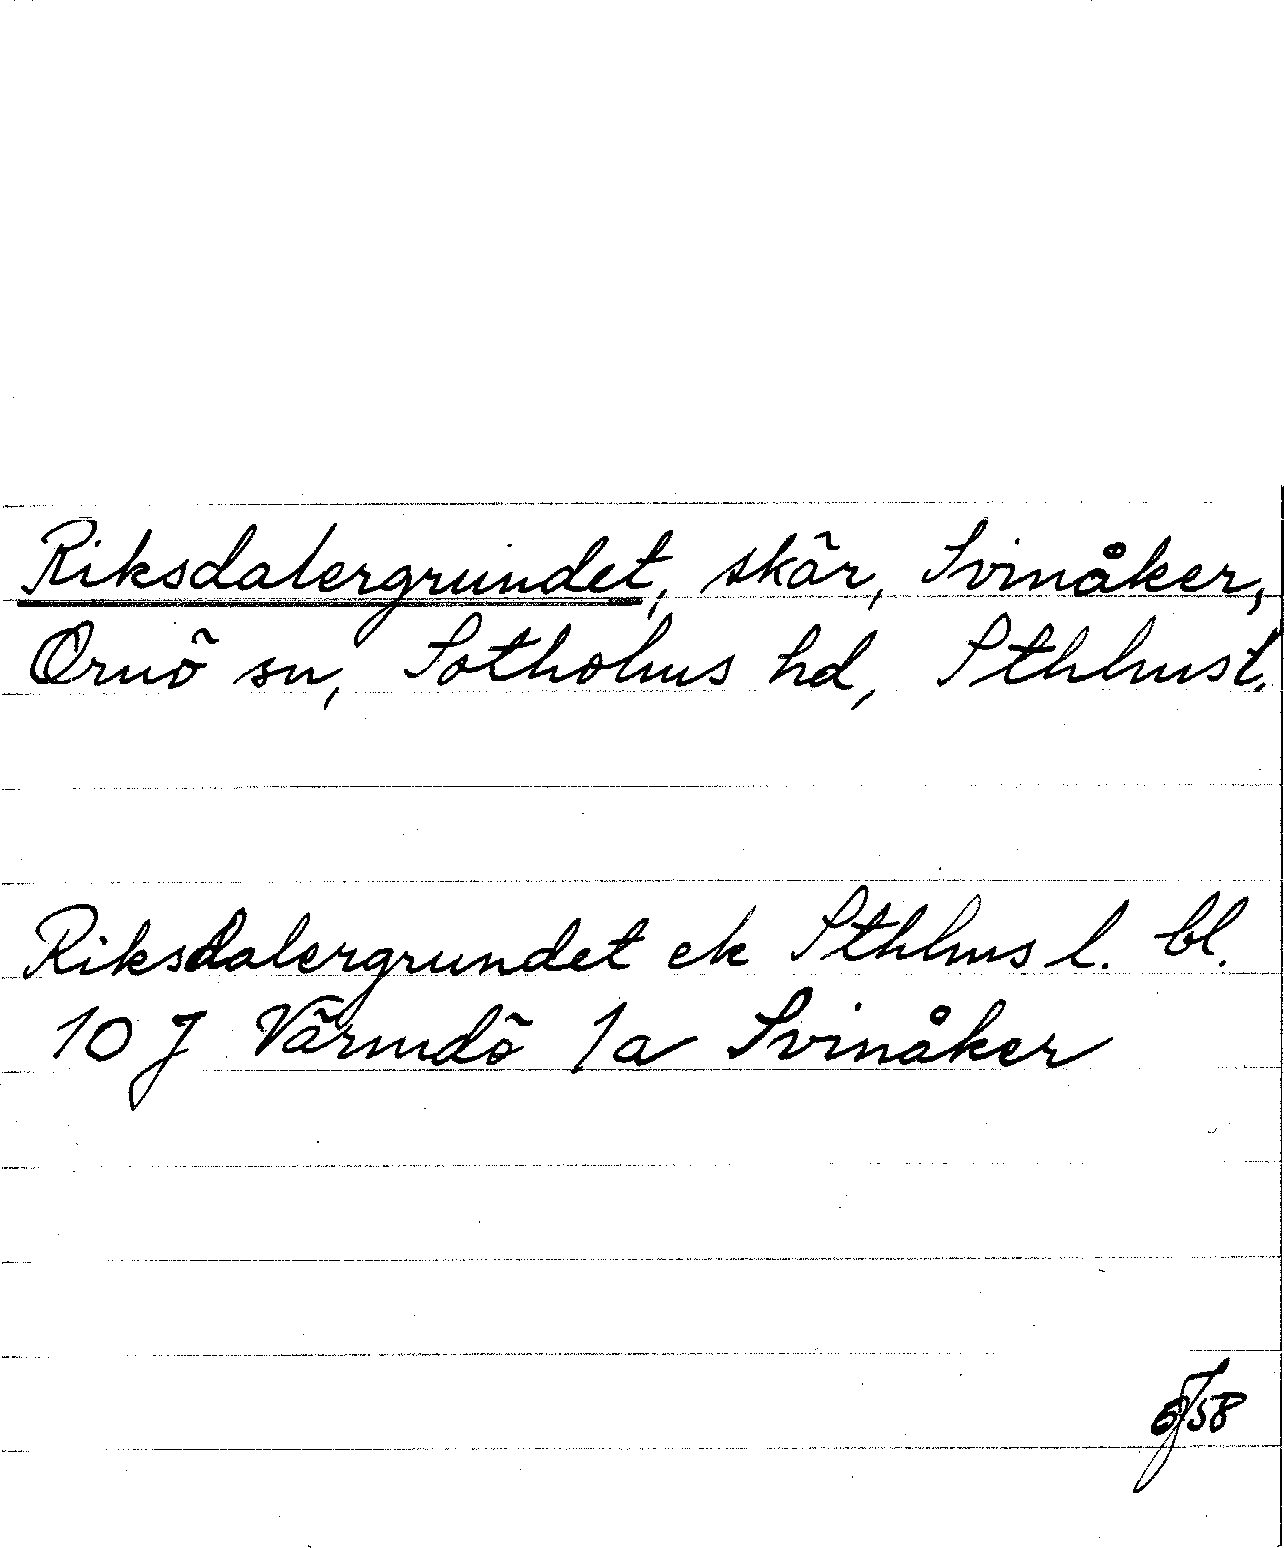 Riksdalergrundet, skär, Svinåker,
Ornö sn, Sotholms hd, Sthlmsl.
Riksdalergrundet ek Sthlms l. bl.
10 J Värmdö 1a Svinåker